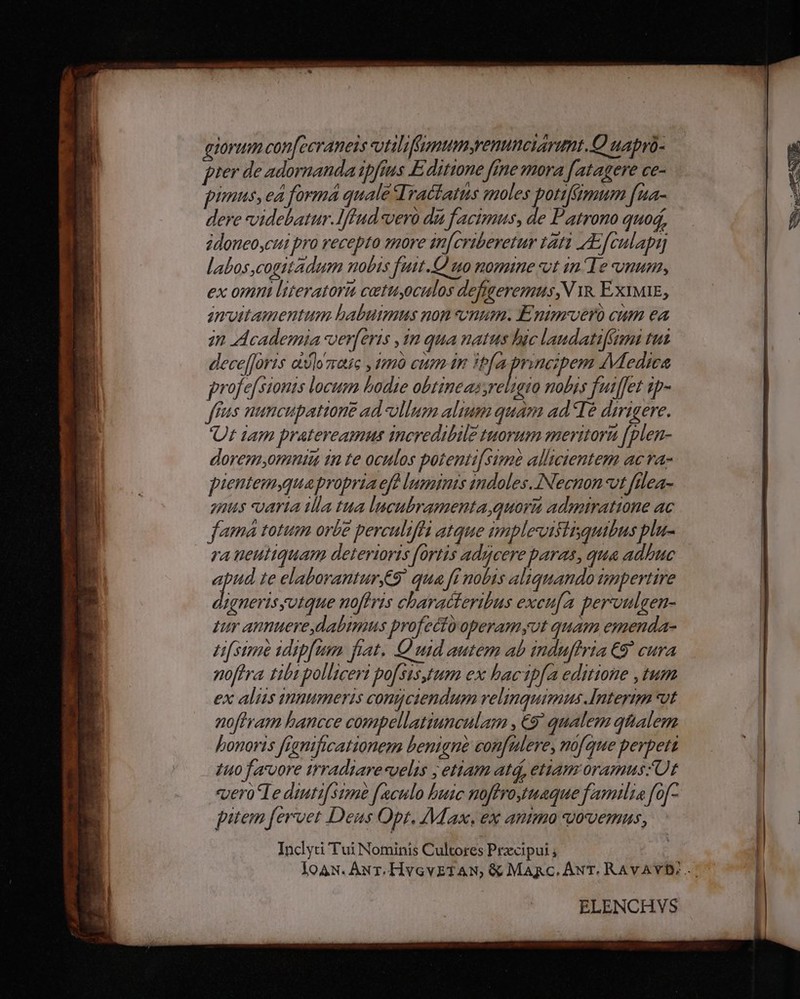 giorum consecraneis vtilissimum renunciarunt. Quaprò-
pter de adornanda ipsius Editione sine mora satagere ce-
pimus, eâ formâ qualē Tractatus moles potissimum sua-
dere videbatur. Istud verò dū facimus, de Patrono quoq́,
idoneo, cui pro recepto more inscriberetur tāti Æsculapij
labos, cogitādum nobis fuit. Quo nomine vt in Te vnum,
ex omni literatorū cœtu, oculos defigeremus, VIR EXIMIE,
invitamentum habuimus non vnum. Enimvero cum ea
in Academia verseris, in qua natus hic laudatissimi tui
decessoris , imò cum in ipsa principem Medica
professionis locum hodie obtineas, religio nobis fuisset ip-
sius nuncupationē ad vllum alium quàm ad Tē dirigere.
Vt iam prætereamus incredibilē tuorum meritorū splen-
dorem, omniū in te oculos potentissimè allicientem ac ra-
pientem, quæ propria est luminis indoles. Necnon vt silea-
mus varia illa tua lucubramenta, quorū admiratione ac
famâ totum orbē perculisti atque implevisti, quibus plu-
ra neutiquam deterioris sortis adijcere paras, quæ adhuc
apud te elaborantur, & quæ si nobis aliquando impertire
digneris, vtque nostris characteribus excusa pervulgen-
tur annuere, dabimus profectò operam, vt quam emenda-
tissimè idipsum fiat. Quid autem ab industria & cura
nostra tibi polliceri possis, tum ex hac ipsa editione, tum
ex aliis innumeris conijciendum relinquimus. Interim vt
nostram hancce compellatiunculam, & qualem qualem
honoris significationem benignè consulere, nosque perpeti
tuo favore irradiare velis, etiam atq́, etiam oramus: Vt
verò Te diutissimè sæculo huic nostro, tuæque familiæ sos-
pitem servet Deus Opt. Max. ex animo vovemus,
Inclyti Tui Nominis Cultores Præcipui,
IOAN. ANT. HVGVETAN, & MARC. ANT. RAVAVD.
ELENCHVS